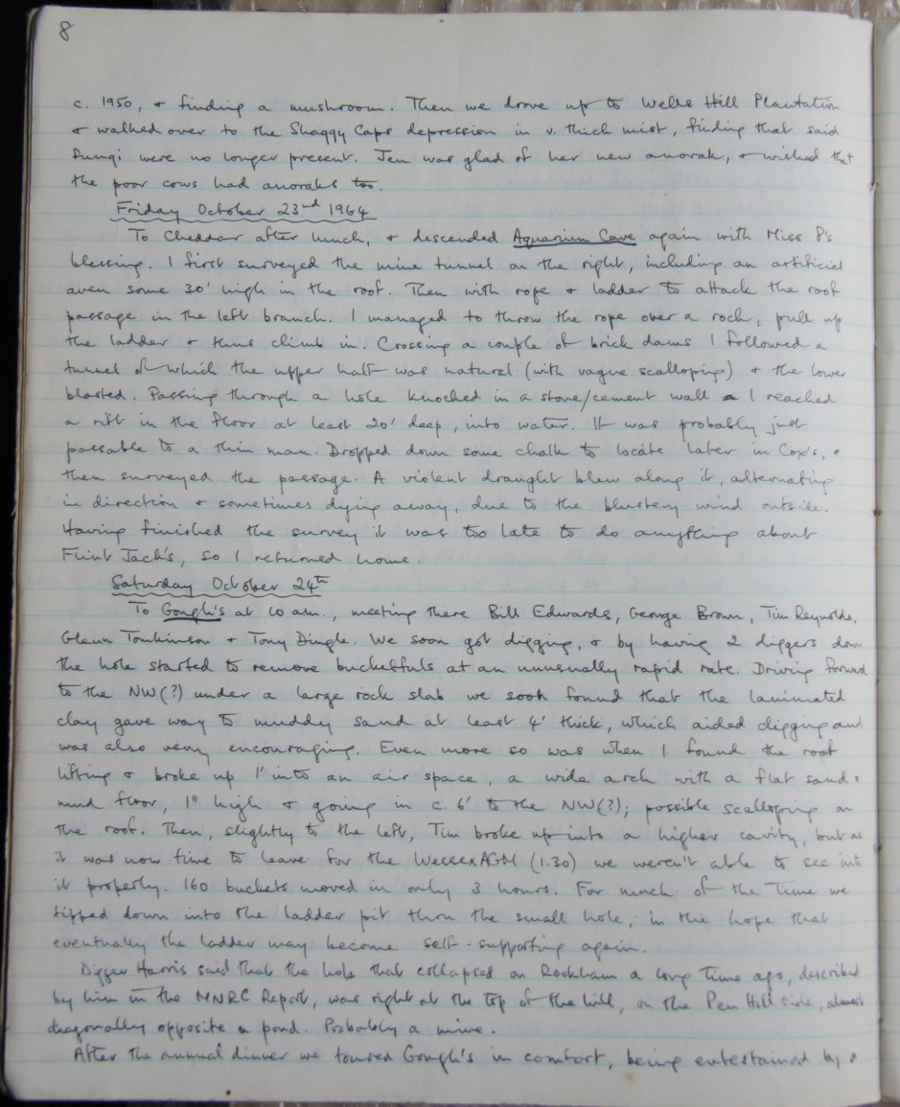 8
c. 1950, & finding a mushroom. Then we drove up to Wells Hill Plantation
& walked over to the Shaggy Caps depression in v. thick mist, finding that said
Fungi were no longer present. Jen was glad of her new anorak, & wished that
the poor cows had anoraks too.
Friday October 23rd 1964
To Cheddar after lunch, & descended Aquarium Cave again with Miss P's
blessing. I first surveyed the mine tunnel on the right, including an artificial
aven some 30' high in the roof. Then with rope & ladder to attack the roof
passage in the left branch. I managed to throw the rope over a rock, pull up
the ladder & thus climb in. Crossing a couple of brick dams I followed a
tunnel of which the upper half was natural (with vague scalloping) & the lower
blasted. Passing through a hole knocked in a stone/cement wall I reached
a rift in the floor at least 20' deep, into water. It was probably just
passable to a thin man. Dropped down some chalk to locate later in Cox's, &
then surveyed the passage. A violent draught blew along it, alternating
in direction & sometimes dying away, due to the blustery wind outside.
Having finished the survey it was too late to do anything about
Flint Jack's, so I returned home.
Saturday October 24th
To Gough's at 10 am., meeting there Bill Edwards, George Brown, Tim Reynolds,
Glenn Tomkinson & Tony Dingle. We soon got digging, & by having 2 diggers down
the hole started to remove bucketfuls at an unusually rapid rate. Driving forward
to the NW(?) under a large rock slab we soon found that the laminated
clay gave way to muddy sand at least 4' thick, which aided digging and
was also very encouraging. Even more so was when I found the roof
lifting & broke up 1' into an air space, a wide arch with a flat sand &
mud floor, 1' high & going in c. 6' to the NW(?); possible scalloping on
the roof. Then, slightly to the left, Tim broke up into a higher cavity, but as
it was now time to leave for the Wessex AGM (1.30) we weren't able to see into
it properly. 160 buckets moved in only 3 hours. For much of the time we
tipped down into the ladder pit thru the small hole, in the hope that
eventually the ladder may become self-supporting again.
Digger Harris said that the hole that collapsed on Rookham a long time ago, described
by him in the MNRC Report, was right at the top of the hill, on the Pen Hill side, almost
diagonally opposite a pond. Probably a mine.
After the annual dinner we toured Gough's in comfort, being entertained by a